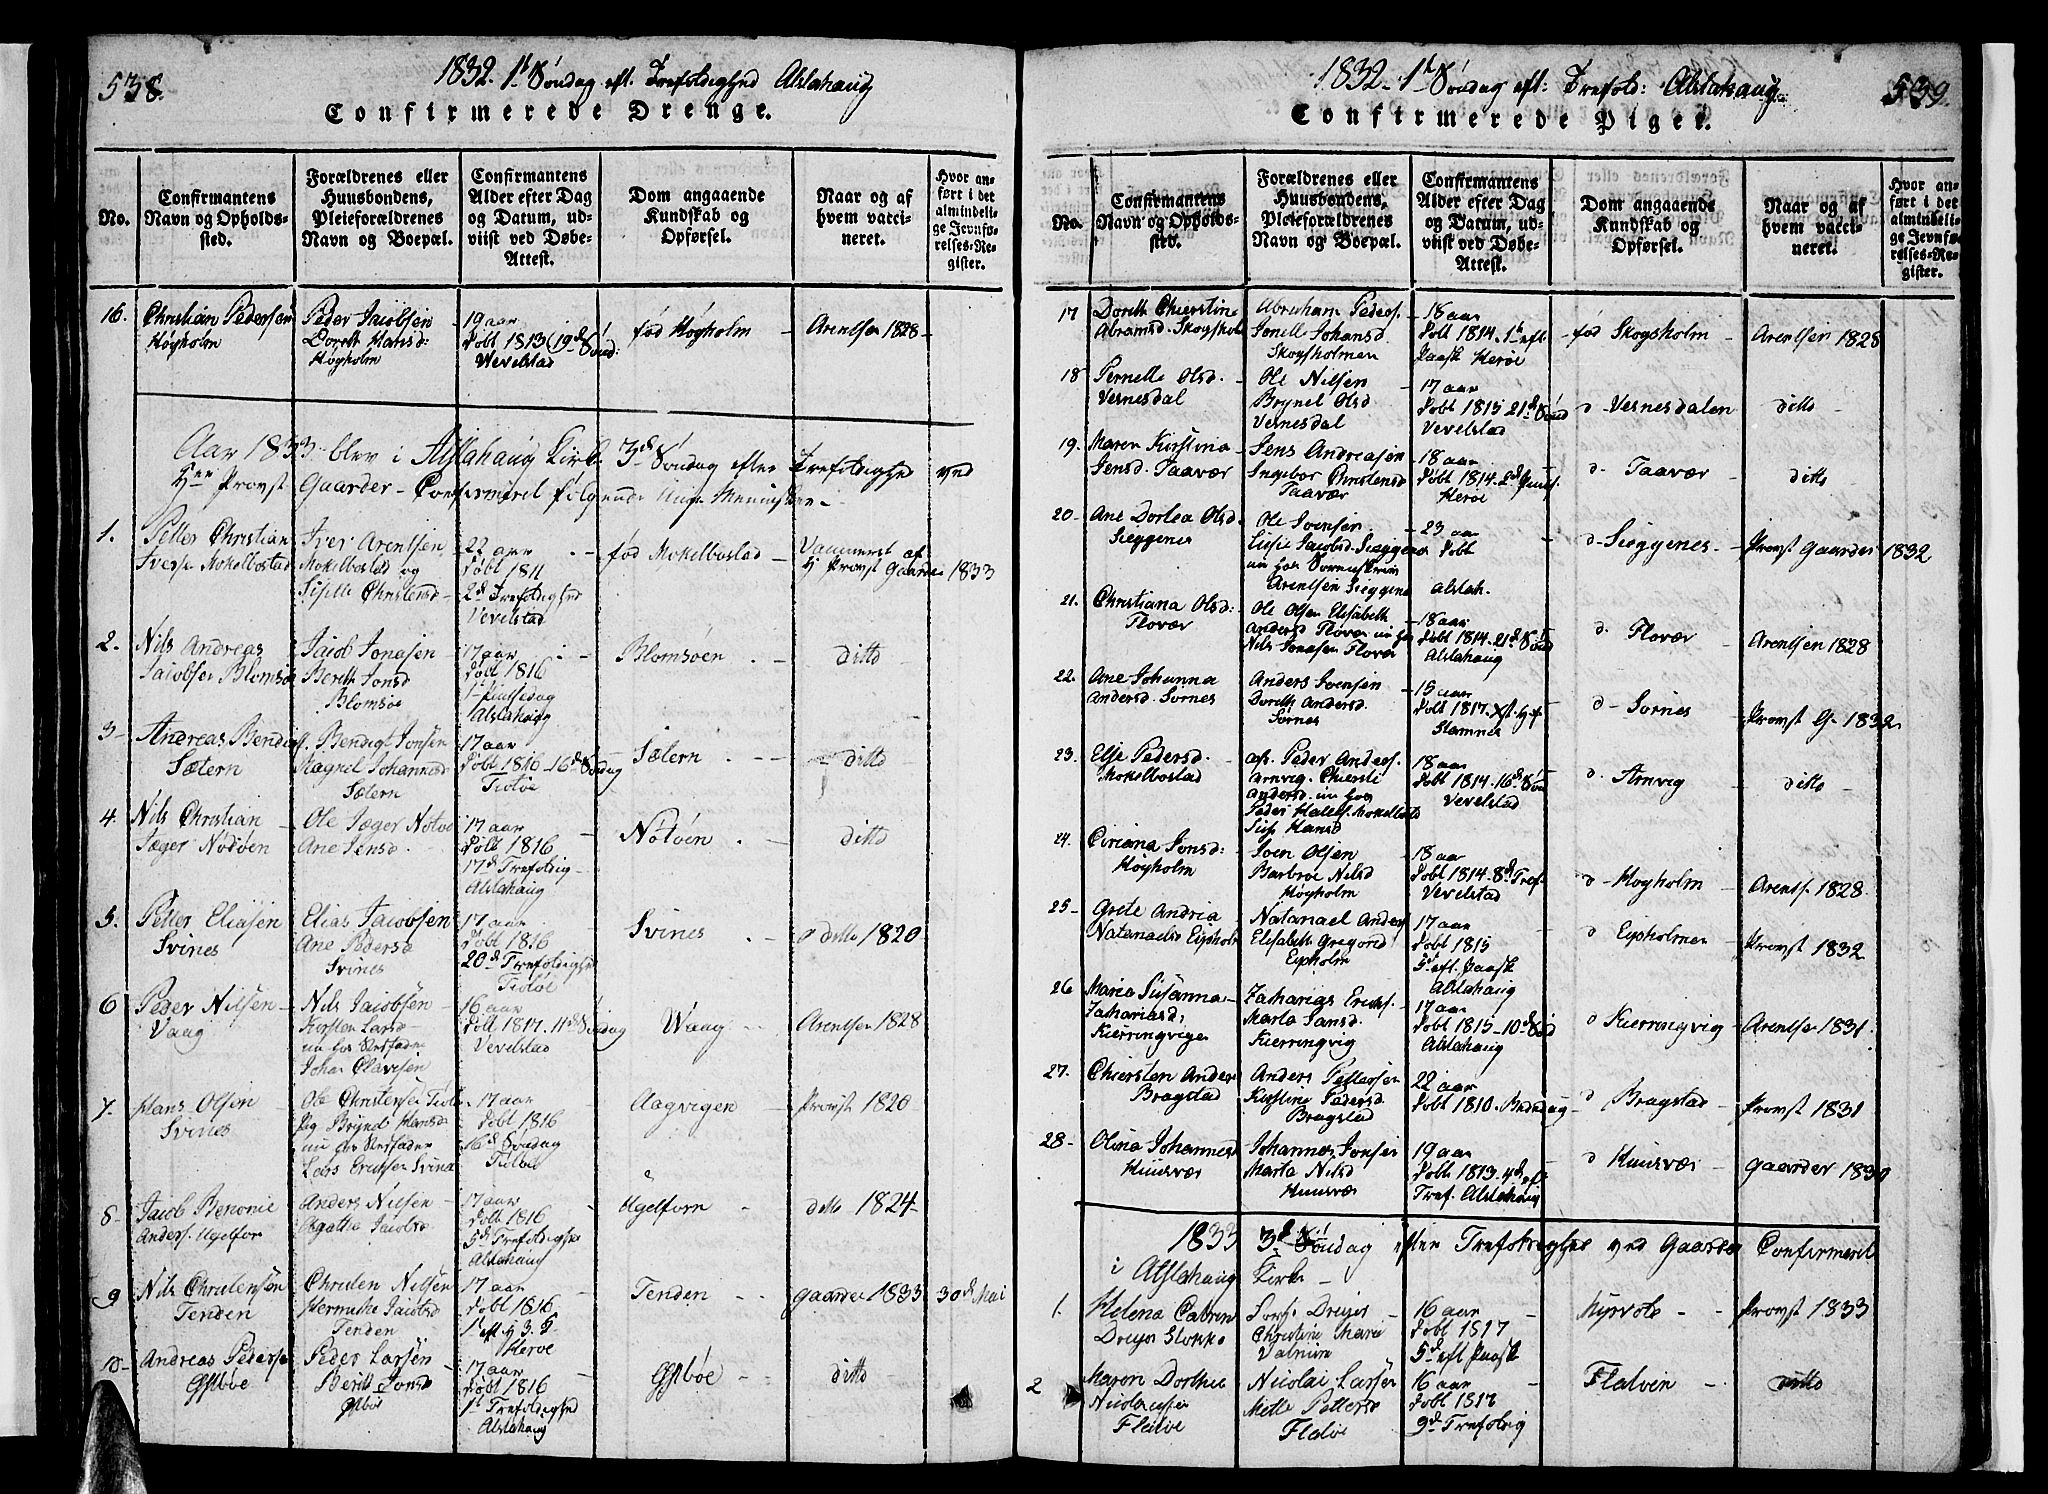 538.
1832. 1ste Søndag eft. Trefoldighed Alstahaug
Confirmerede Drenge.
No.
Confirmantens Navn og Opholds-
sted.
Forældrenes eller
Huusbondens,
Pleieforældrenes
Navn og Boepæl.
Confirmantens
Alder efter Dag
og Datum, ud-
viist ved Døbe-
Attest.
Dom angaaende
Kundskab og
Opførsel.
Naar og af
hvem vacci-
neret.
Hvor an-
ført i det
almindeli-
ge Jevnfø-
relses-Re-
gister.
16. Christian Pedersen
Høgholm
Peder Jacobsen
Doreth Hansd:
Høgholm
19 aar
Døbt 1813 (19d Sønd:
Vevelstad
fød Høgholm
Arentsen 1828
Aar 1833 blev i Alstahaug Kirke 3d Søndag efter Trefoldighed ved
Hr Provst Gaarder Confirmeret følgende Unge Mennisker
1. Petter Christian
Iversen Mokelbostad
Iver Arentsen
Mokelbostad og
Siselle Christensd
22 aar
Døbt 1811
2d Trefoldighed
Vevelstad
fød Mokelbostad
af
H Provst Gaarder 1833
2. Nils Andreas
Jacobsen Blomsø
Jacob Jonasen
Bereth Jonsd
Blomsøe
17 aar
Døbt 1816
1 Pintsedag
Alstahaug
Blomsøen
ditto
3 Andreas Bendigts.
Sætern
Bendigt Jonsen
Magnel Johannesd
Sætern
17 aar
Døbt 1816 16d Søndag
Tiøtøe
Sætern
ditto
4. Nils Christian
Jæger Nødøen
Ole Jæger Nøtøe
Ane Jensd.
17 aar
Døbt 1816
17d Trefoldig
Alstahaug
Nøtøen
ditto
5. Petter Eliasen
Svines
Elias Jacobsen
Ane Pedersd
Svines
17 aar
Døbt 1816
20d Trefoldighed
Tiøtøe
Svines
ditto 1820
6 Peder Nilsen
Vaag
Nils Jacobsen
Kirsten Larsd
nu hos Stedfader
Johan Olavesen
16 aar
Døbt 1817. 11d Søndag
Vevelstad
Waag
Arentsen 1828
7. Hans Olsen
Svines
Ole Christensen Tiøtøe
Pig Brynel Hansd
nu hos Stedfader
Lars Ericksen Svines
17 aar
Døbt 1816
16d Søndag
Tiøtøe
Aagvigen
Provst 1820
8 Jacob Benonie
Anders. Ugelfor
Anders Nilsen
Agatha Jacobsd
17 aar
Døbt 1816
5d Trefoldighed
Alstahaug
Ugelforn
ditto 1824
9 Nils Christensen
Tenden
Christen Nilsen
Jacobsd
Tenden
17 aar
Døbt 1816
1d eft H 3. K
Herøe
Tenden
Gaarder 1833 30d Mai
10 Andreas Pedersen
Østbøe
Peder Larsen
Berith Jonsd
Østbøe
17 aar
Døbt 1816
1d Trefoldighed
Alstahaug
Østbøe
ditto
539.
1832 1ste Søndag eft: Trefold: Alstahaug
Confirmerede Piger.
No.
Confirmantens
Navn og Opholds-
sted.
Forældrenes eller
Huusbondens,
Pleieforældrenes
Navn og Boepæl.
Confirmantens
Alder efter Dag
og Datum, ud-
viist ved Døbe-
Attest.
Dom angaaende
Kundskab og
Opførsel.
Naar og af
hvem vacci-
neret.
Hvor an-
ført i det
almindeli-
ge Jevnfø-
relses-Re-
gister.
17 Doreth Chierstine
Abramsd. Skogsholm
Abraham Peders.
Jonelle Johansd.
Skogsholmen
18 aar
Døbt 1814. 1d eft
Paask Herøe
fød Skogsholm
Arentsen 1828
18 Pernelle Olsd.
Vernesdal
Ole Nilsen
Brynel Olsd
Vernesdal
17 aar
Døbt 1815 21d Sønd
Vevelstad
d Vernesdalen
ditto
19. Maren Kirstina
Jensd. Taavær
Jens Andreasen
Ingebor Christensd
Taavær
18 aar
Døbt 1814 2d
Herøe
d. Taavær
ditto
20 Ane Dorlea Olsd.
Sieggenes
Ole Svensen
Lisje Jacobsd. Sieggenes
nu hos
Arentsen Sieggenes
23 aa
Døbt
Alstah.
d Sieggenes
Provst Gaarder 1832
21. Christiana Olsd:
Flovær
Ole Olsen Elisabeth
Andersd Flovær nu hos
Nils Jonasen Flovær
18 aar
Døbt 1814 21d Sønd
Alstahaug
d. Flovær
Arentsen 1828
22. Ane Johanna
Andersd Sørnes
Anders Svensen
Doreth Andersd.
Sørnes
15 aar
Døbt 1817.
Stamnes
d Sørnes
Provst G. 1832
23. Else Pedersd.
Mokelbostad
afs. Peder Anders.
Arnvig. Chiersti
Andersd. nu hos
Peder Hallefs. Mokelbostad
Hansd
18 aar
Døbt 1814 16d Sønd
Vevelstad
d. Arnvig
ditto
24. Ciriana Sønsd:
Høgholm
Sven Olsen
Barbroe Nilsd
Høgholm
18 aar
Døbt 1814 8d Tref
Vevelstad
d Høgholm
Arents. 1828
25 Grete Andria
Natanaelsd Eipholm
Natanael Anders
Elisabeth Gregorisd
Eipholm
17 aar
Døbt 1815
5d eft. Paask
Alstahaug
d Eipholmen
Provst 1832
26 Maria Susanna
Zachariasd.
Kierringvigen
Zacharias Ericks.
Marta Jansd.
Kierringvig
17 aar
Døbt 1815 10d Sønd
Alstahaug
d Kierringvig
Arentsen 1831
27. Chiersten Anders
Bragstad
Anders Pettersen
Kirstine Pedersd
Bragstad
22 aar
Døbt 1810. Bededag
d Bragstad
Provst 1831
28 Olina Johannesd
Huusvær
Johannes Jonsen
Marta Nilsd
Huusvær
19 aar
Døbt 1813. 4d eft
Tref. Alstahaug
d Huusvær
Gaarder 1830
1833 3d Søndag efter Trefoldighed ved Gaarder Confirmeret
i Alstahaug Kirke
1. Helena Catrin
Dreyer Slokke
Dreyer
Christine Marie
16 aar
Døbt 1817
5d eft Paask
Provst 1833
2 Maren Dorthea
Nicolaisen
Flatøe
Nicolai Larsen
Mette Pettersd
Flatøe
16 aar
Døbt 1817
9d Trefoldig
Flatøen
ditto